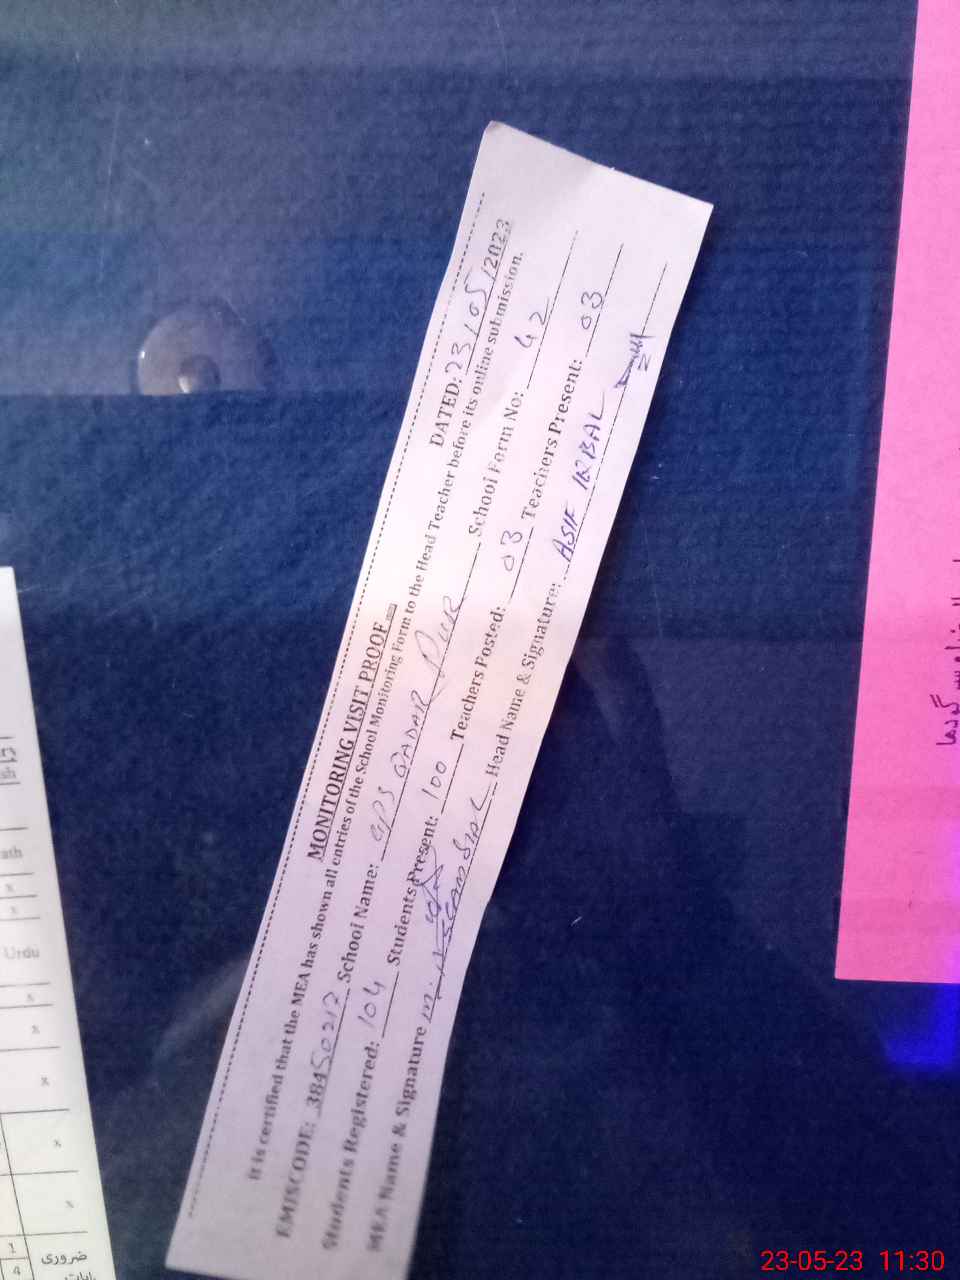 MONITORING VISIT PROOF
DATED: 23/05/2023
It is certified that the MEA has shown all entries of the School Monitoring Form to the Head Teacher before its online submission.
EMISCODE: 38450212 School Name: GPS QADAR PUR School Form No: 42
Students Registered: 104 Students Present: 100 Teachers Posted: 03 Teachers Present: 03
MEA Name & Signature M. Head Name & Signature: ASIF IQBAL
sh
ath
x
x
Urdu
x
x
x
x
x
1
4
ضروری
23-05-23 11:30